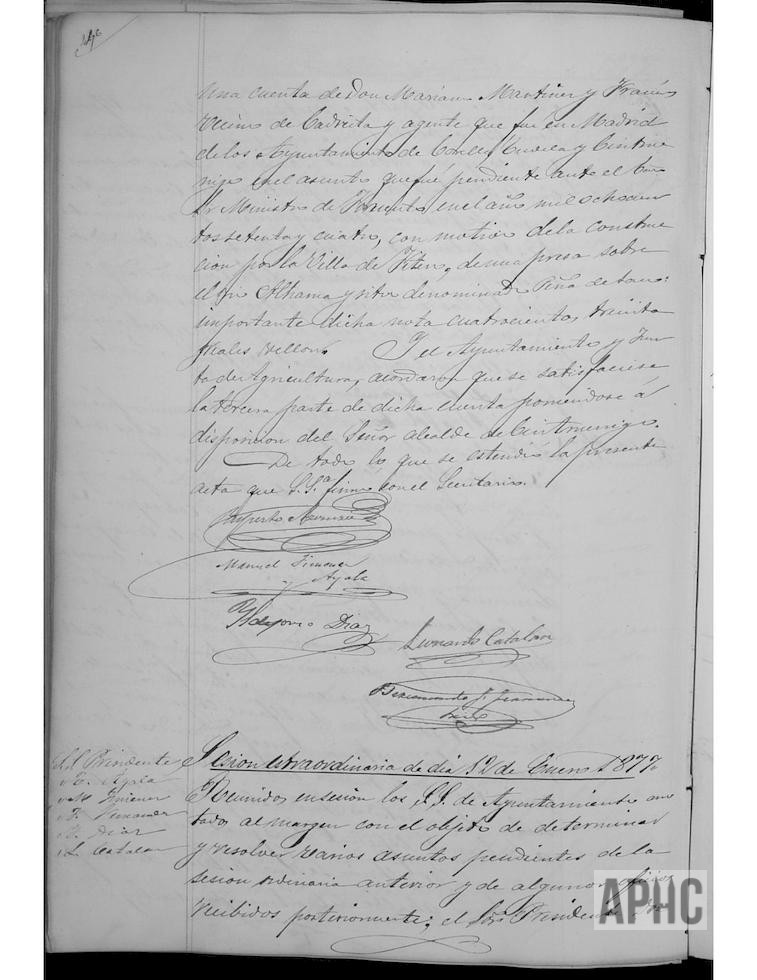 Una cuenta de Don Mariano Martinez y Francés
vecino de Cadreita y agente que fue en Madrid
de los Ayuntamientos de Corella Tudela y Cintrue
nigo en el asunto que fue pendiente ante el
Sr Ministro de Fomento en el año mil ochocien
tos setenta y cuatro, con motivo de la construc
cion por la Villa de Fitero, de una presa sobre
el rio Alhama y sitio denominado Peña de
importante dicha nota cuatrocientos treinta
reales vellon. Y el Ayuntamiento y Jun
ta de Agricultura, acordaron que se satisfaciese
la tercera parte de dicha cuenta poniendose á
disposicion del Señor alcalde de Cintruenigo.
De todo lo que se estendió la presente
acta que S.Sª firma con el Secretario.
Ruperto
Manuel Jimenez
y Ayala
Ildefonso Diaz
Leonardo Catalan
S.S. Presidente
Ayala
M. Jimenez
Diaz
L. Catalan
Sesion estraordinaria de dia 12 de Enero 1877
Reunidos en sesion los S.S. de Ayuntamiento ano
tados al margen con el objeto de determinar
y resolver varios asuntos pendientes de la
sesion ordinaria anterior y de algunos oficios
recibidos posteriormente; el Sor Presidente
APHC